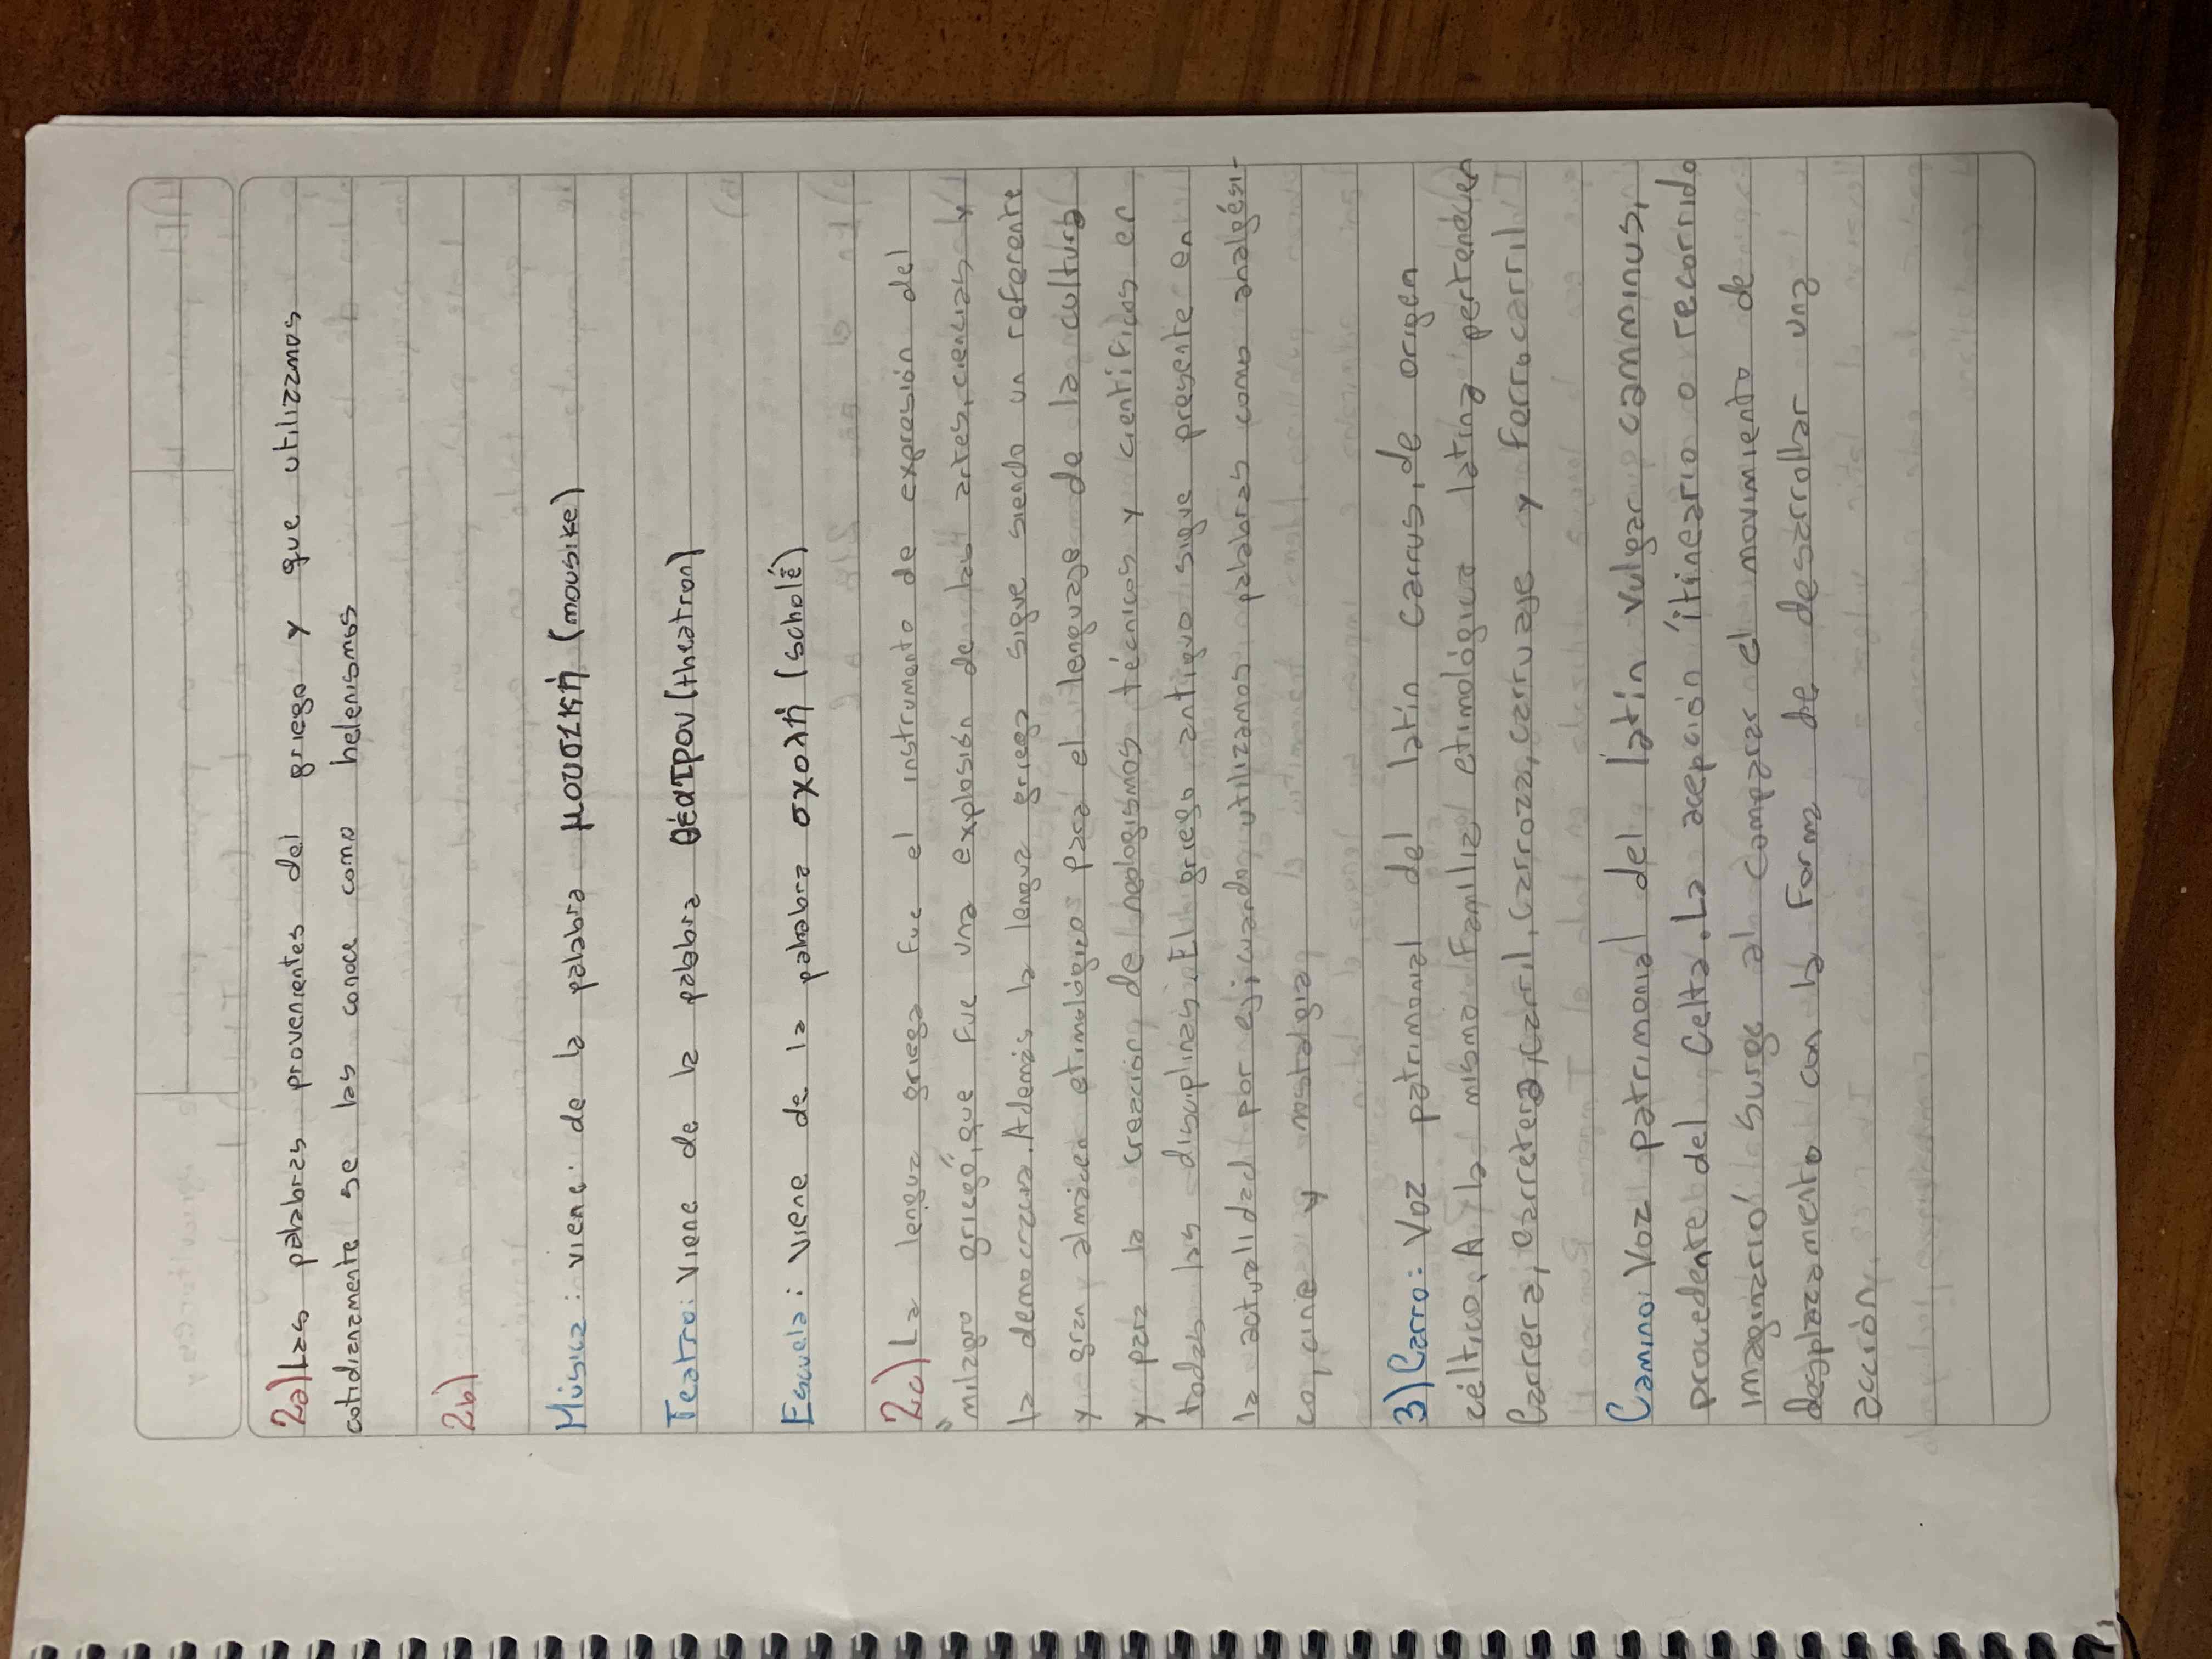 2a) Las palabras provenientes del griego y que utilizamos
cotidianamente se las conoce como helenismos
2b)
Música: viene de la palabra μουσική (mousike)
Teatro: Viene de la palabra θέατρον (theatron)
Escuela: Viene de la palabra σχολή (scholé)
2c) La lengua griega fue el instrumento de expresión del
"milagro griego", que fue una explosión de las artes, ciencias y
la democracia. Además la lengua griega sigue siendo un referente
y gran almácen etimológico para el lenguaje de la cultura
y para la creación de neologismos técnicos y científicos en
todas las disciplinas. El griego antiguo sigue presente en
la actualidad por ej; cuando utilizamos palabras como analgési-
co, cine y nostalgia
3) Carro: Voz patrimonial del latín carrus, de origen
céltico. A la misma familia etimológica latina pertenecen
Carrera, carretera, carril, carroza, carruaje y ferrocarril
Camino: Voz patrimonial del latín vulgar camminus,
procedente del Celta. La acepción ́itinerario o recorrido
imaginario ́ surge al comparar el movimiento de
desplazamiento con la forma de desarrollar una
acción.